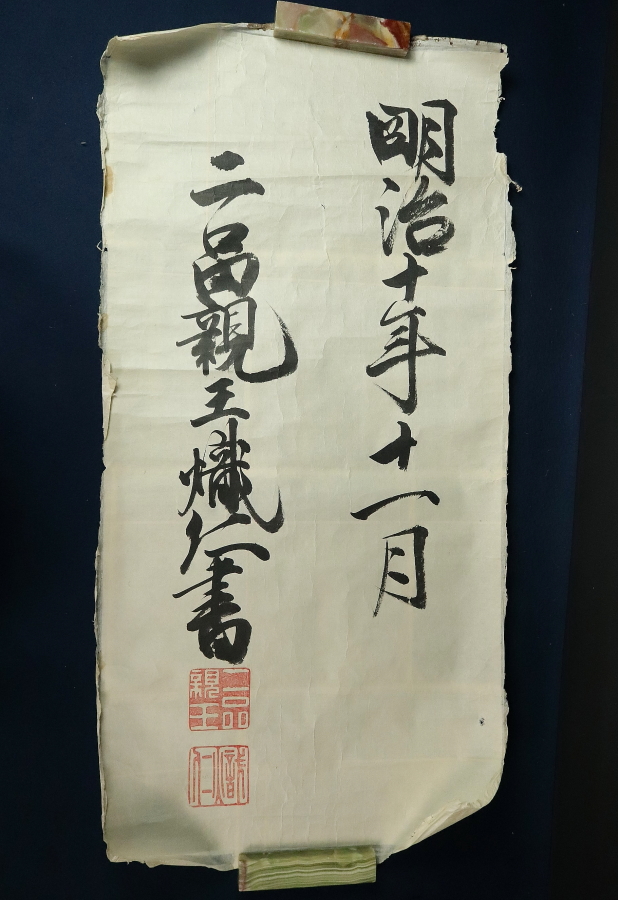 明治十年十一月
二品親王熾仁書
二品親王
熾仁